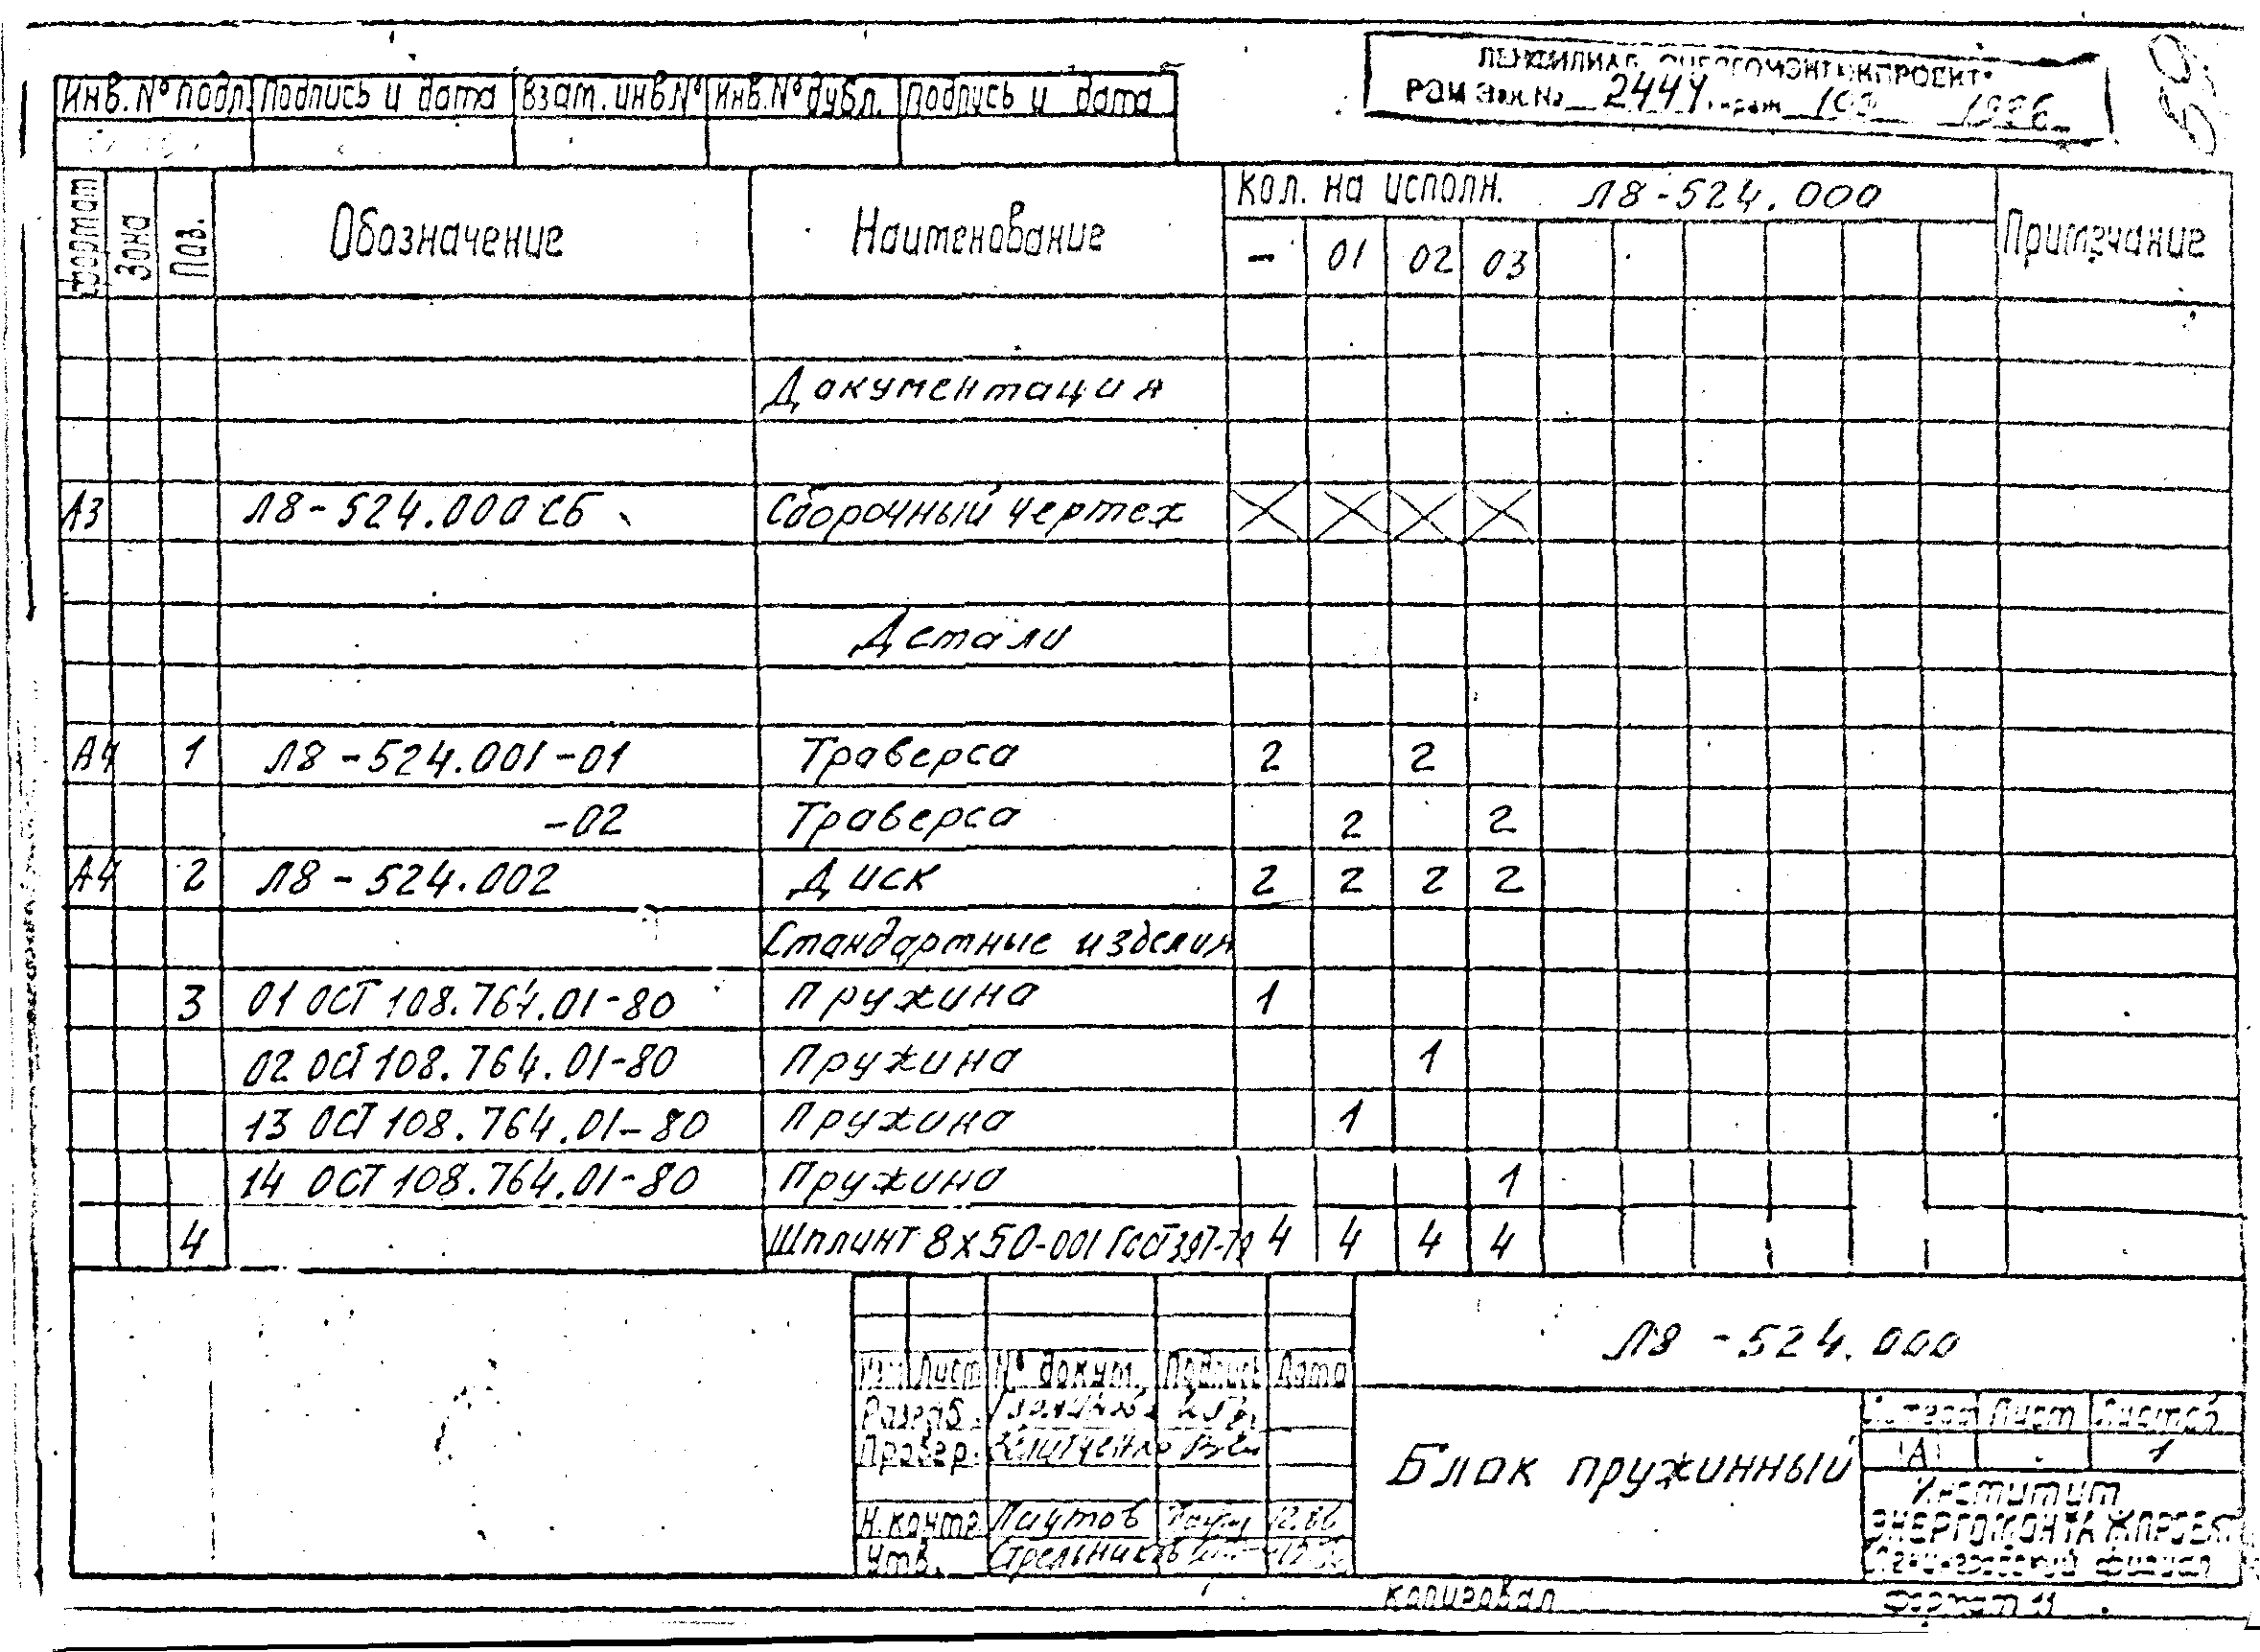 ЛЕНФИЛИАЛ "ЭНЕРГОМОНТАЖПРОЕКТ"
РОМ Зак. № 2444 тираж 100 1986
59
Инв. № подл. Подпись и дата Взам. инв. № Инв. № дубл. Подпись и дата
Формат Зона Поз. Обозначение Наименование Кол. на исполн. Л8-524.000 Примечание
- 01 02 03
Документация
А3 Л8-524.000 СБ Сборочный чертеж
Детали
А4 1 Л8-524.001-01 Траверса 2 2
-02 Траверса 2 2
А4 2 Л8-524.002 Диск 2 2 2 2
Стандартные изделия
3 01 ОСТ 108.764.01-80 Пружина 1
02 ОСТ 108.764.01-80 Пружина 1
13 ОСТ 108.764.01-80 Пружина 1
14 ОСТ 108.764.01-80 Пружина 1
4 Шплинт 8х50-001 ГОСТ 397-79 4 4 4 4
Л8-524.000
Изм. Лист № докум. Подпись Дата
Разраб.
Провер.
Н. контр. Паутов 12.86
Утв. Стрельников
Блок пружинный
Литера Лист Листов
А 1
Институт
ЭНЕРГОМОНТАЖПРОЕКТ
Ленинградский филиал
копировал
Формат 11